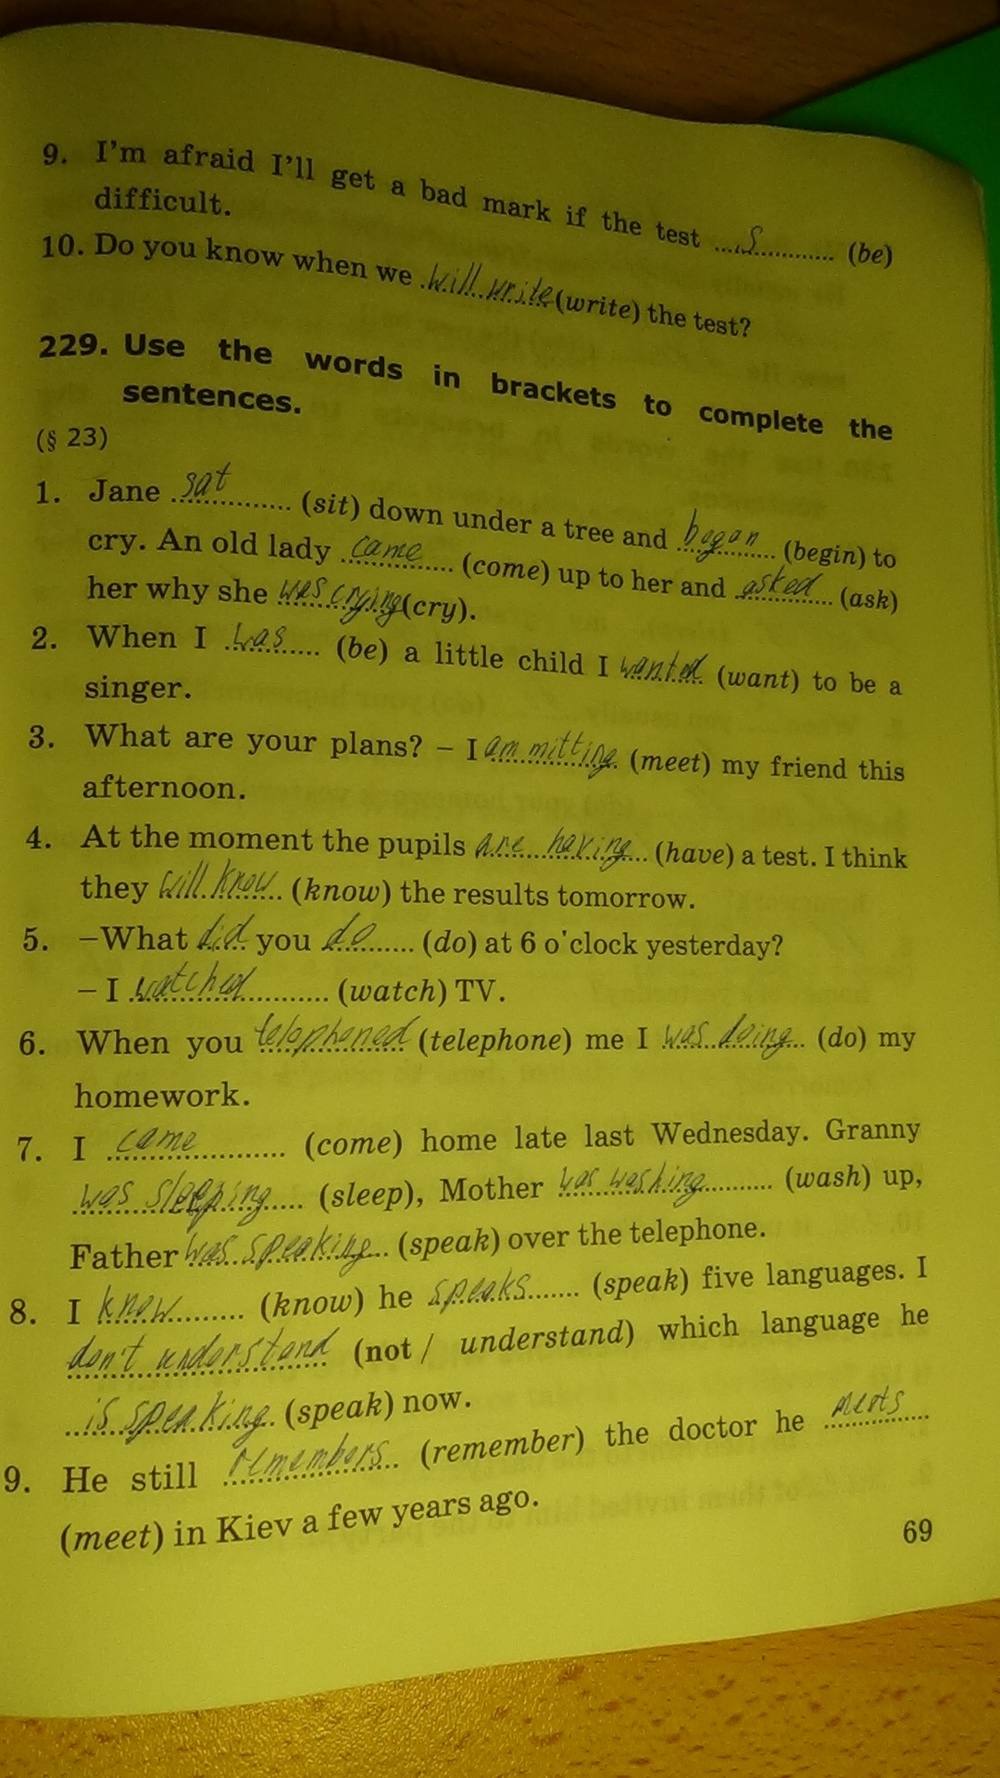 9. I'm afraid I'll get a bad mark if the test ....is............ (be)
difficult.
10. Do you know when we will write (write) the test?
229. Use the words in brackets to complete the
sentences.
(§ 23)
1. Jane sat (sit) down under a tree and began (begin) to
cry. An old lady came (come) up to her and asked (ask)
her why she was crying (cry).
2. When I was (be) a little child I wanted (want) to be a
singer.
3. What are your plans? – I am mitting (meet) my friend this
afternoon.
4. At the moment the pupils are having (have) a test. I think
they will know (know) the results tomorrow.
5. –What did you do (do) at 6 o'clock yesterday?
– I watched (watch) TV.
6. When you telephoned (telephone) me I was doing (do) my
homework.
7. I came (come) home late last Wednesday. Granny
was sleeping (sleep), Mother was washing (wash) up,
Father was speaking (speak) over the telephone.
8. I know (know) he speaks (speak) five languages. I
don't understand (not / understand) which language he
is speaking (speak) now.
9. He still remembers (remember) the doctor he meets
(meet) in Kiev a few years ago.
69